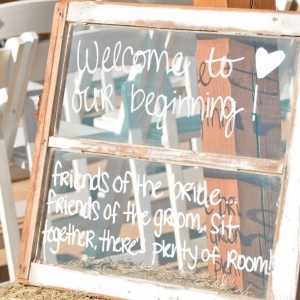 Welcome to
our beginning!
friends of the bride...
friends of the groom, sit
together, there's plenty of room!